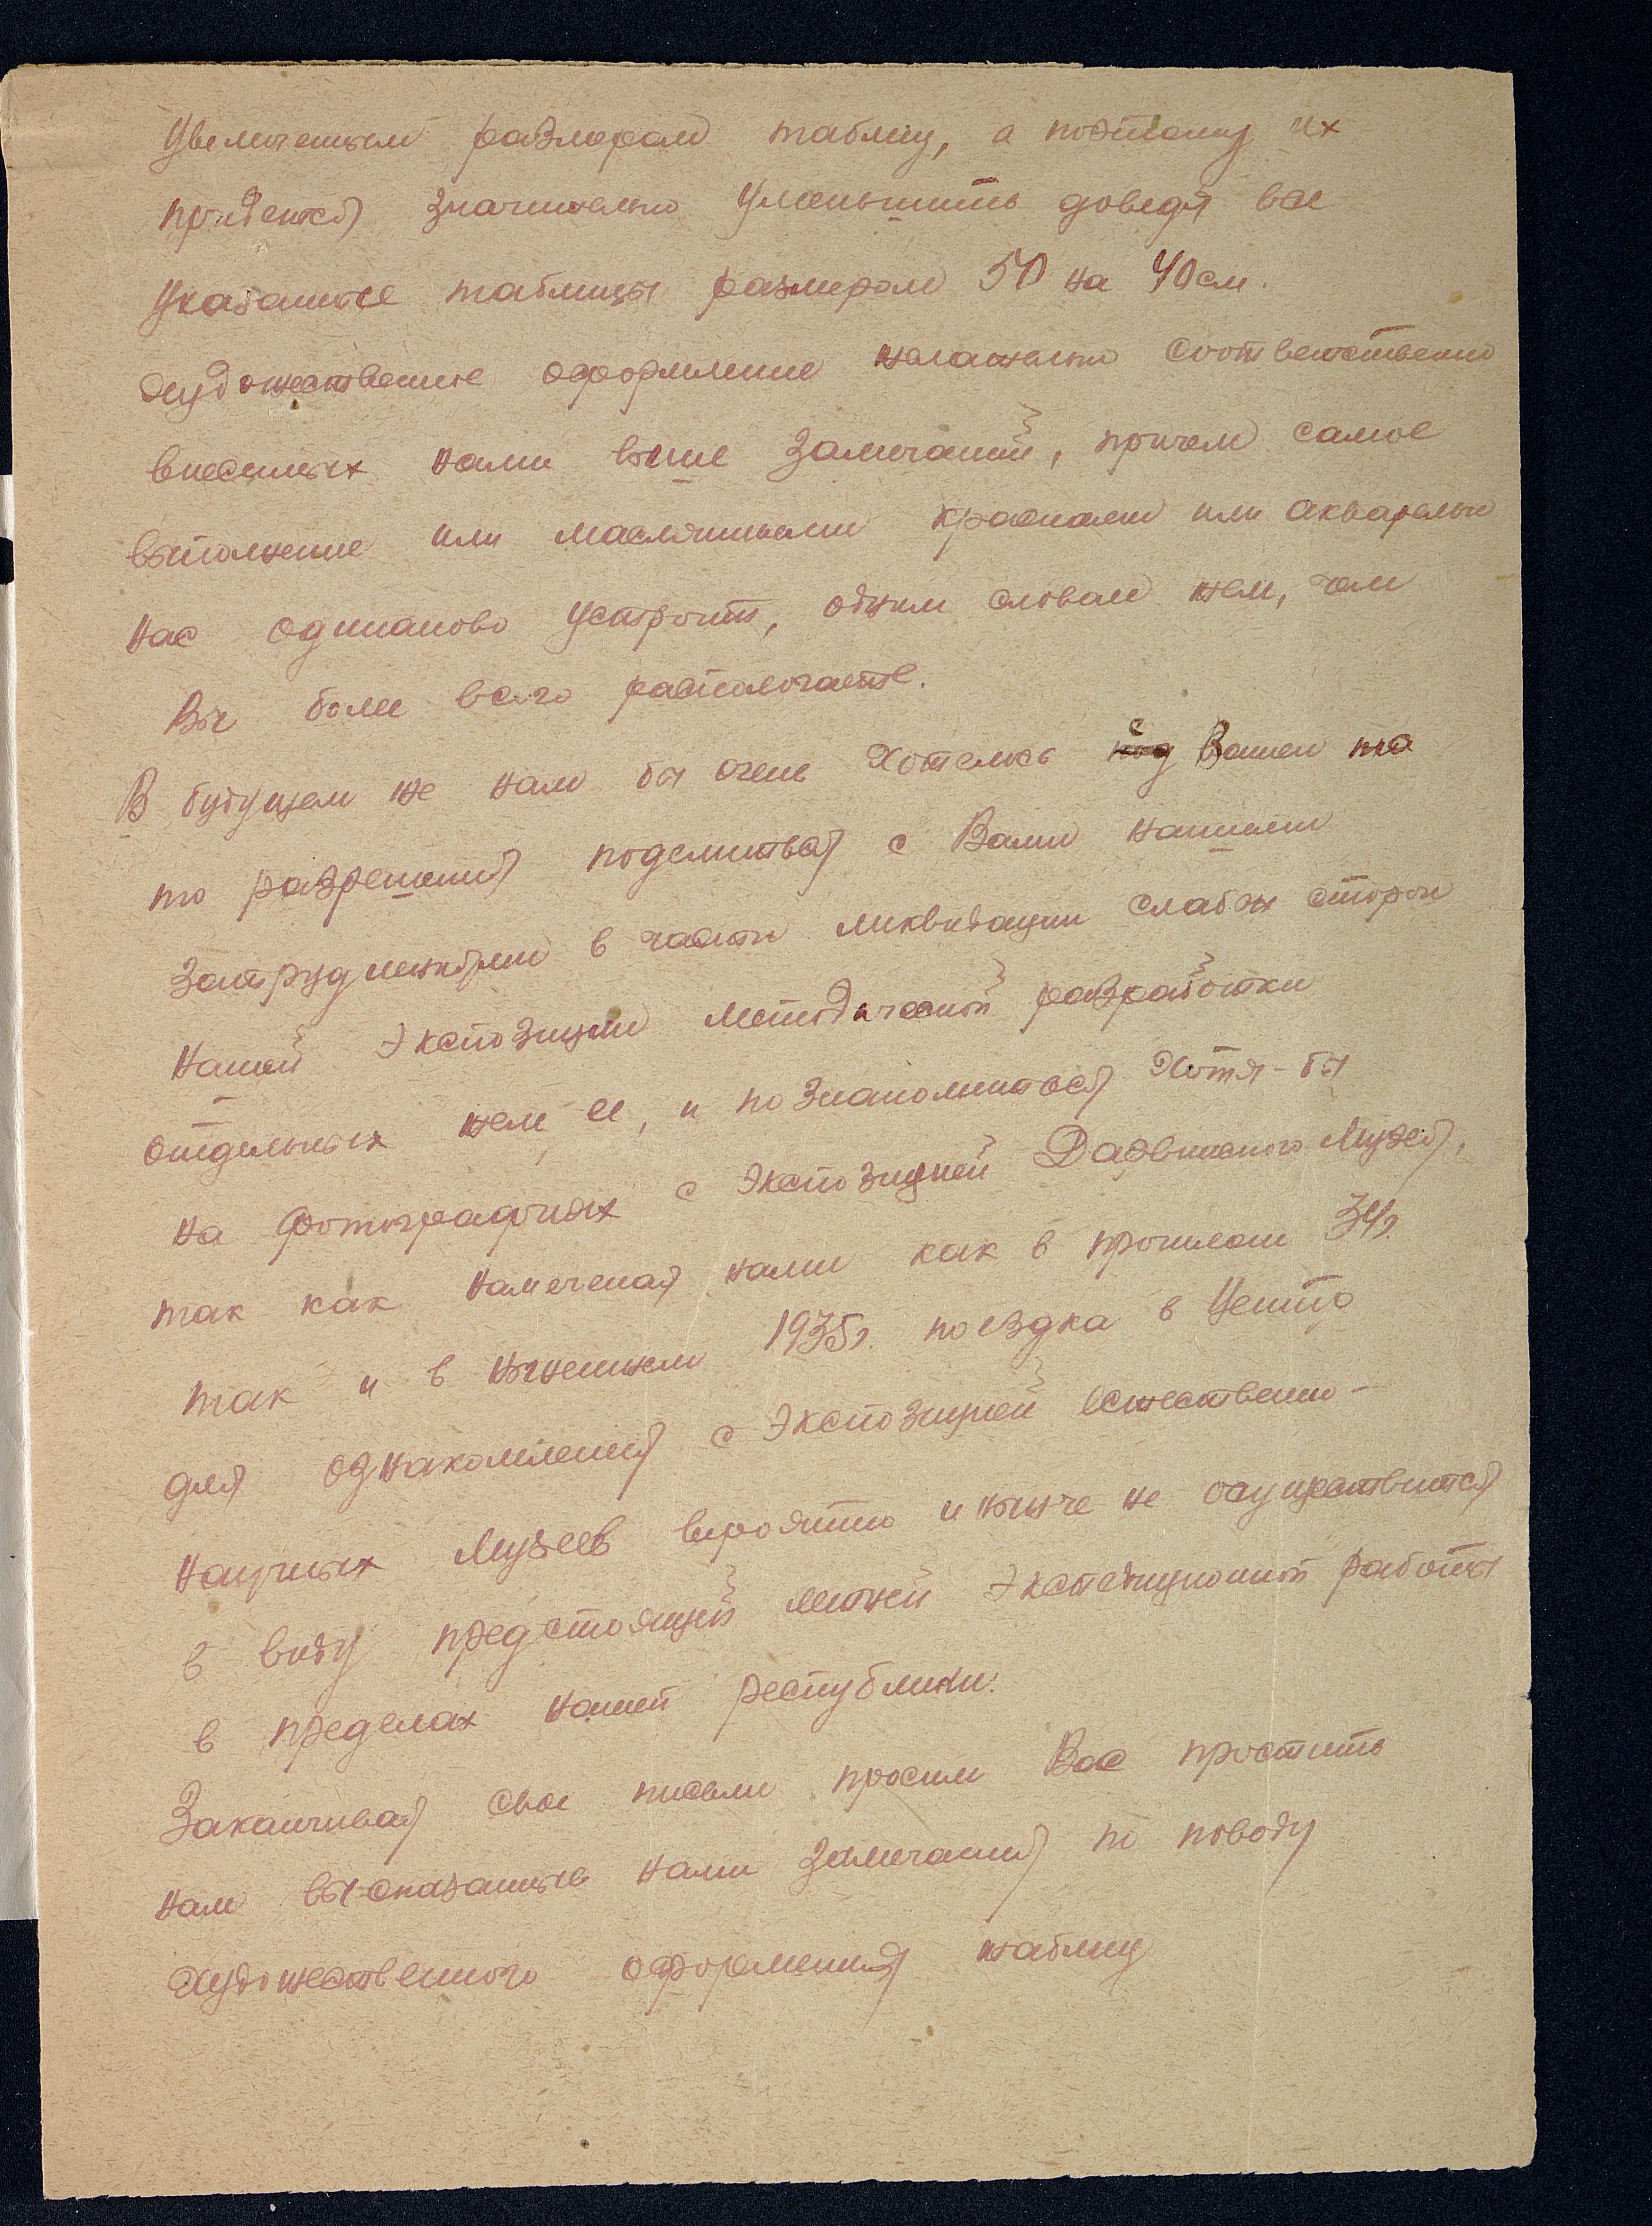 увеличенным размером таблиц, а поэтому их
придется значительно уменьшить доведя все
указанные таблицы размером 50 на 40 см.
Художественное оформление желательно соответственно
внесенных нами выше замечаний, причем самое
выполнение или маслянными красками или акварелью
нас одинаково устроит, одним словом тем, чем
Вы более всего располагаете.
В будущем же нам бы очень хотелось с Вашего
то разрешения поделиться с Вами нашими
затруднениями в части ликвидации слабых сторон
нашей экспозиции методической разработки
отдельных тем ее, и познакомиться хотя-бы
на фотографиях с экспозицией Дарвинского Музея,
так как намеченая нами как в прошлом 34г.
так и в нынешнем 1935г. поездка в Центр
для ознакомления с экспозицией естественно-
научных Музеев вероятно и нынче не осуществится
в виду предстоящей летней экспедиционной работы
в пределах нашей республики.
Заканчивая свое письмо просим Вас простить
нам высказанные нами замечания по поводу
художественного оформления таблиц